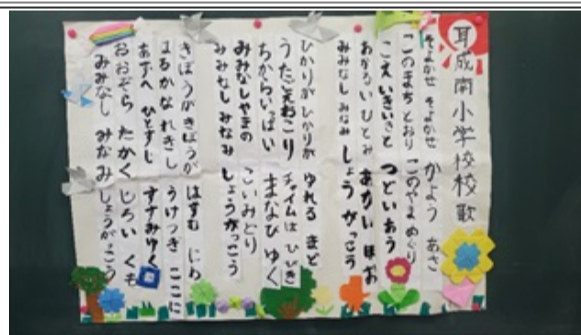 耳成南小学校校歌
そよかぜ そよかぜ かよう あさ
このまち とおり このやま めぐり
こえ いきいきと つどいあう
あかるい ひとみ あかい ほお
みみなし みなみ しょうがっこう
ひかりが ひかりが ゆれる まど
うたごえおこり チャイムは ひびき
ちからいっぱい まなびゆく
みみなしやまの こいみどり
みみなし みなみ しょうがっこう
きぼうが きぼうが はずむ にわ
はるかなれきし うけつぎ ここに
あすへ ひとすじ すすみゆく
おおぞら たかく しろい くも
みみなし みなみ しょうがっこう